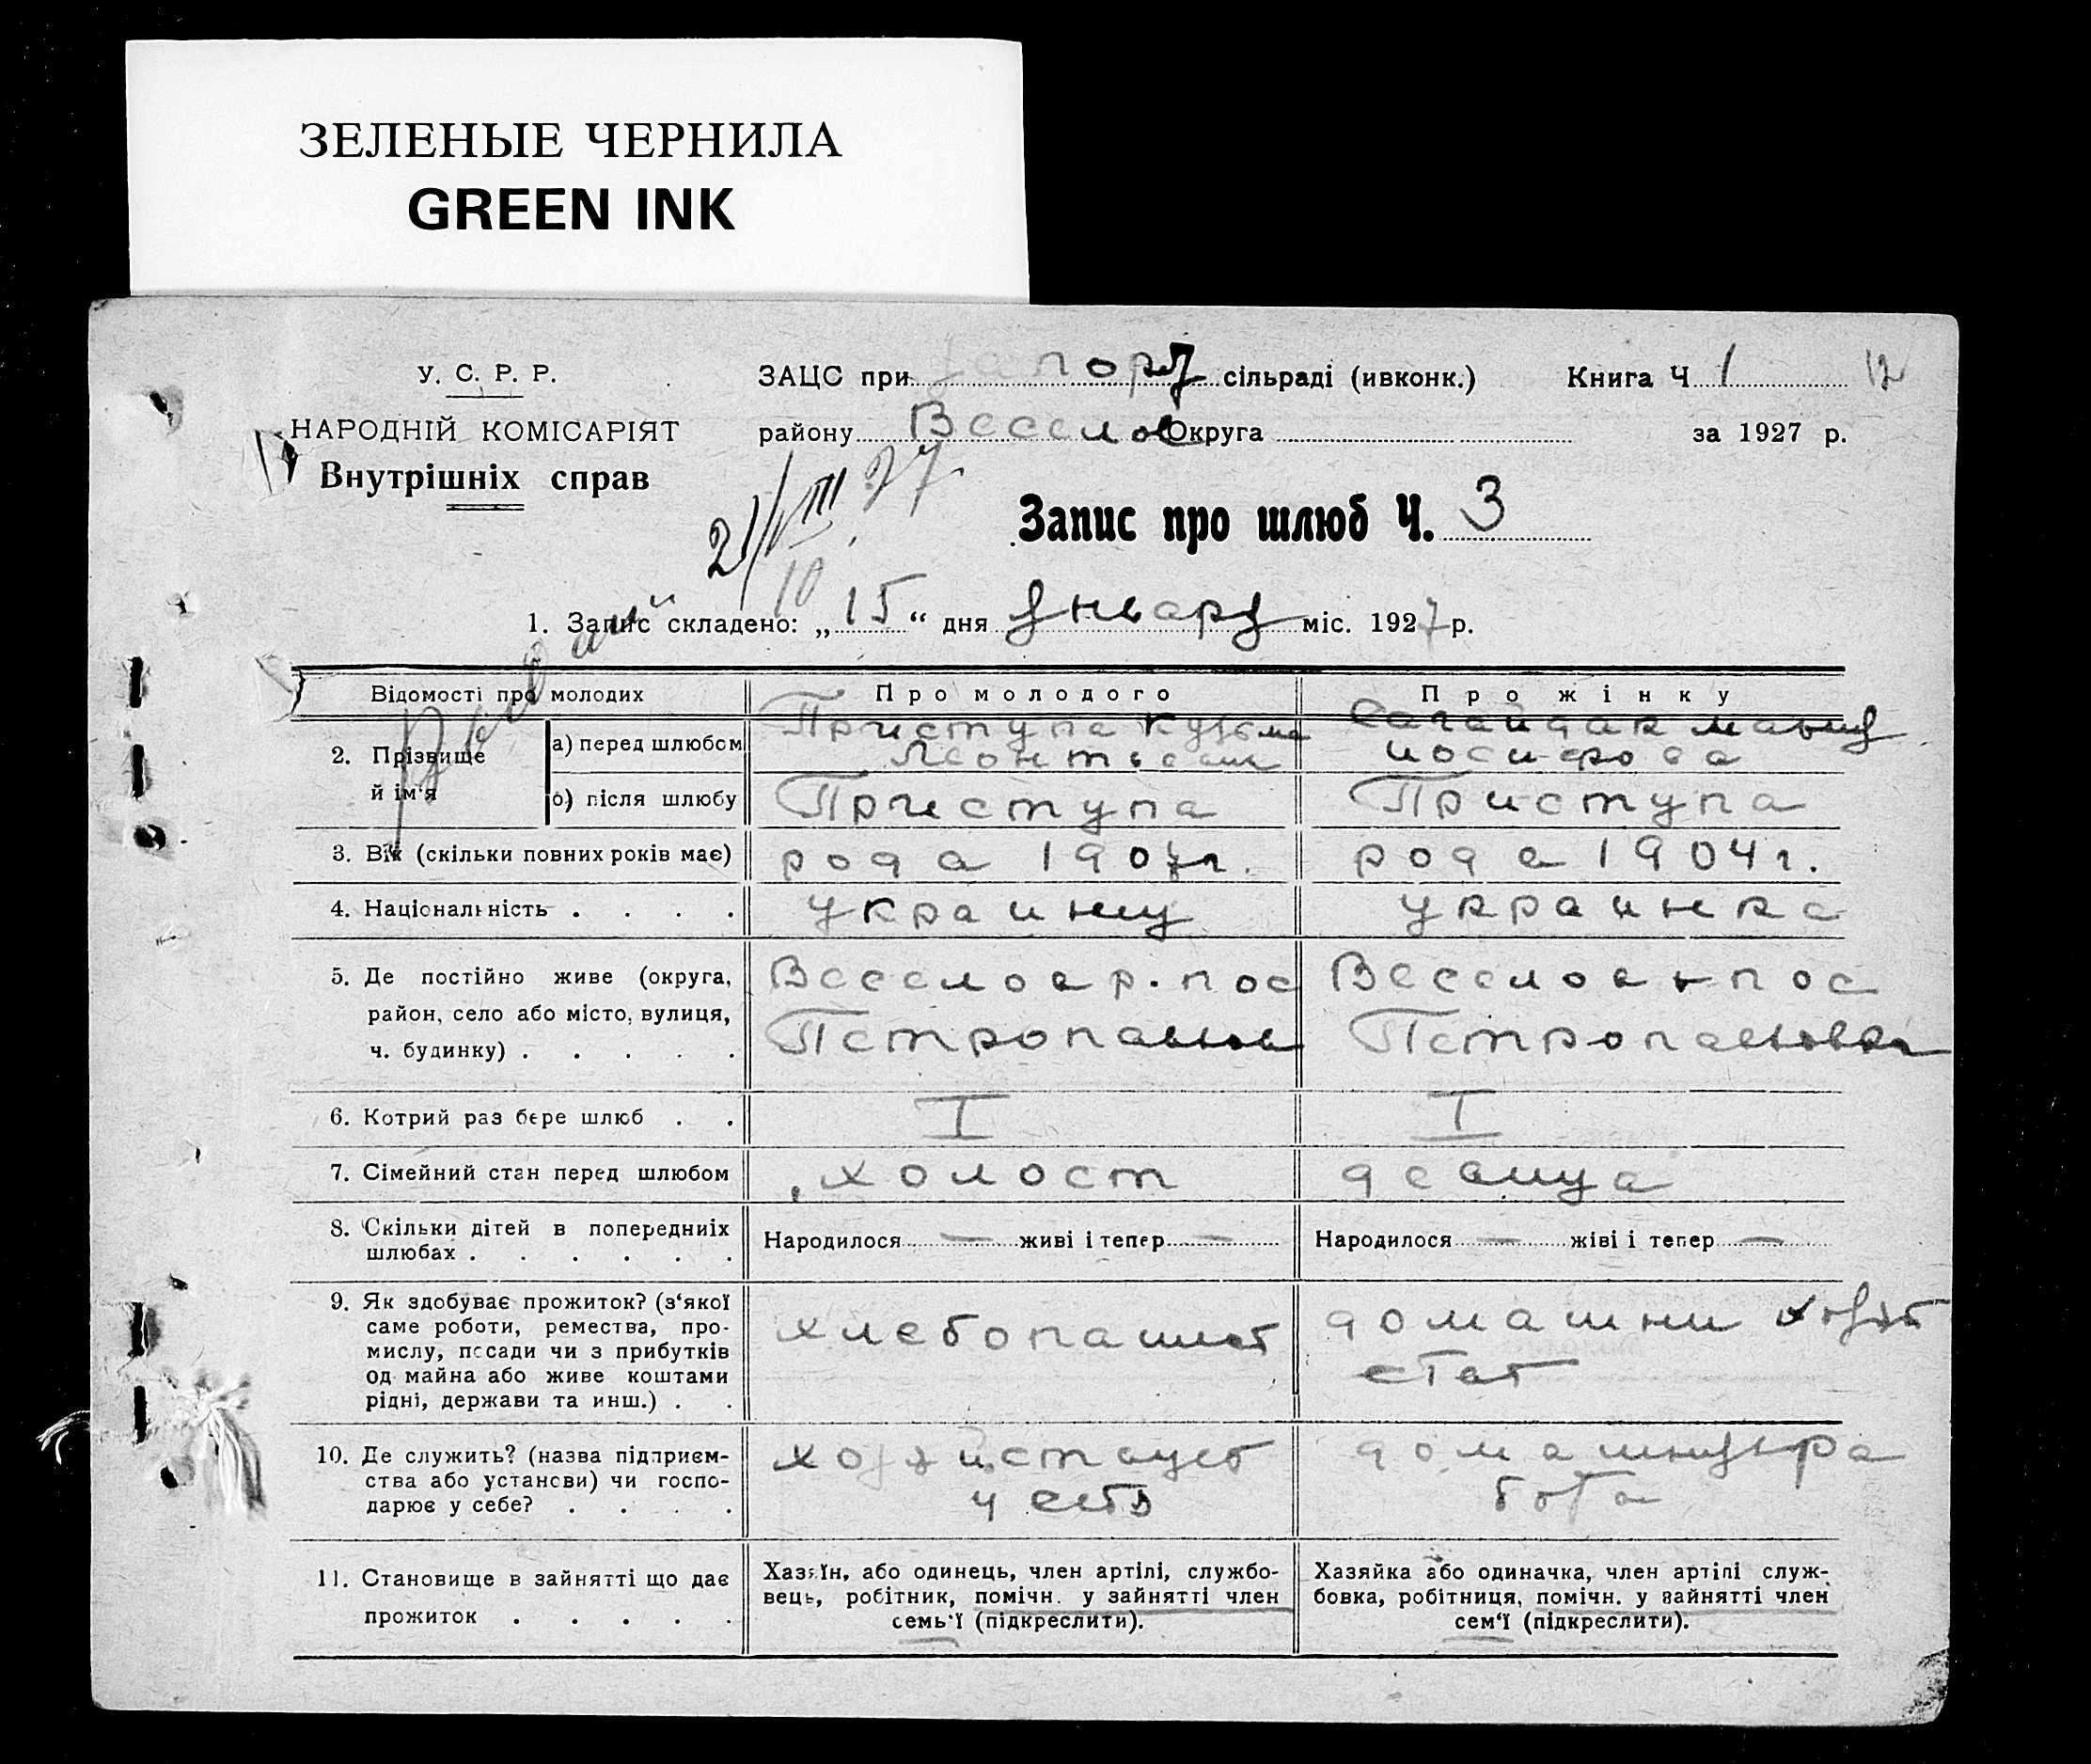 ЗЕЛЕНЫЕ ЧЕРНИЛА
GREEN INK
У. С. Р. Р.
НАРОДНІЙ КОМІСАРІЯТ
Внутрішніх справ
ЗАЦС при сільраді (ивконк.) Книга Ч 1 12
району Веселов Округа за 1927 р.
21/III 27
Запис про шлюб Ч. 3
10
1. Запис складено: „15“ дня января міс. 1927 р.
Відомості про молодих Про молодого Про жінку
2. Прізвище й ім'я
а) перед шлюбом Приступа Кузьма Сагайдак
Леонтьевич иосифова
б) після шлюбу Приступа Приступа
3. Вік (скільки повних років має) рода 1907г. рода 1904г.
4. Національність . . . . украинец украинка
5. Де постійно живе (округа, Веселов р. пос Веселов р пос
район, село або місто, вулиця, Петропавлов Петропавловка
ч. будинку) . . . . .
6. Котрий раз бере шлюб . . I I
7. Сімейний стан перед шлюбом холост девица
8. Скільки дітей в попередниіх Народилося — живі і тепер — Народилося — жіві і тепер —
шлюбах . . . . . .
9. Як здобуває прожиток? (з'якої
саме роботи, ремества, про- хлебопашест домашни
мислу, посади чи з прибутків
од майна або живе коштами
рідні, держави та инш.) . .
10. Де служить? (назва підприєм- домашняя ра
ства або установи) чи госпо- бота
дарює у себе? . . . .
11. Становище в зайнятті що дає
прожиток . . . . .
Хазяїн, або одинець, член артілі, службо-
вець, робітник, помічн. у зайнятті член
семь'ї (підкреслити).
Хазяйка або одиначка, член артілі служ-
бовка, робітниця, помічн. у зайнятті член
сем'ї (підкреслити).